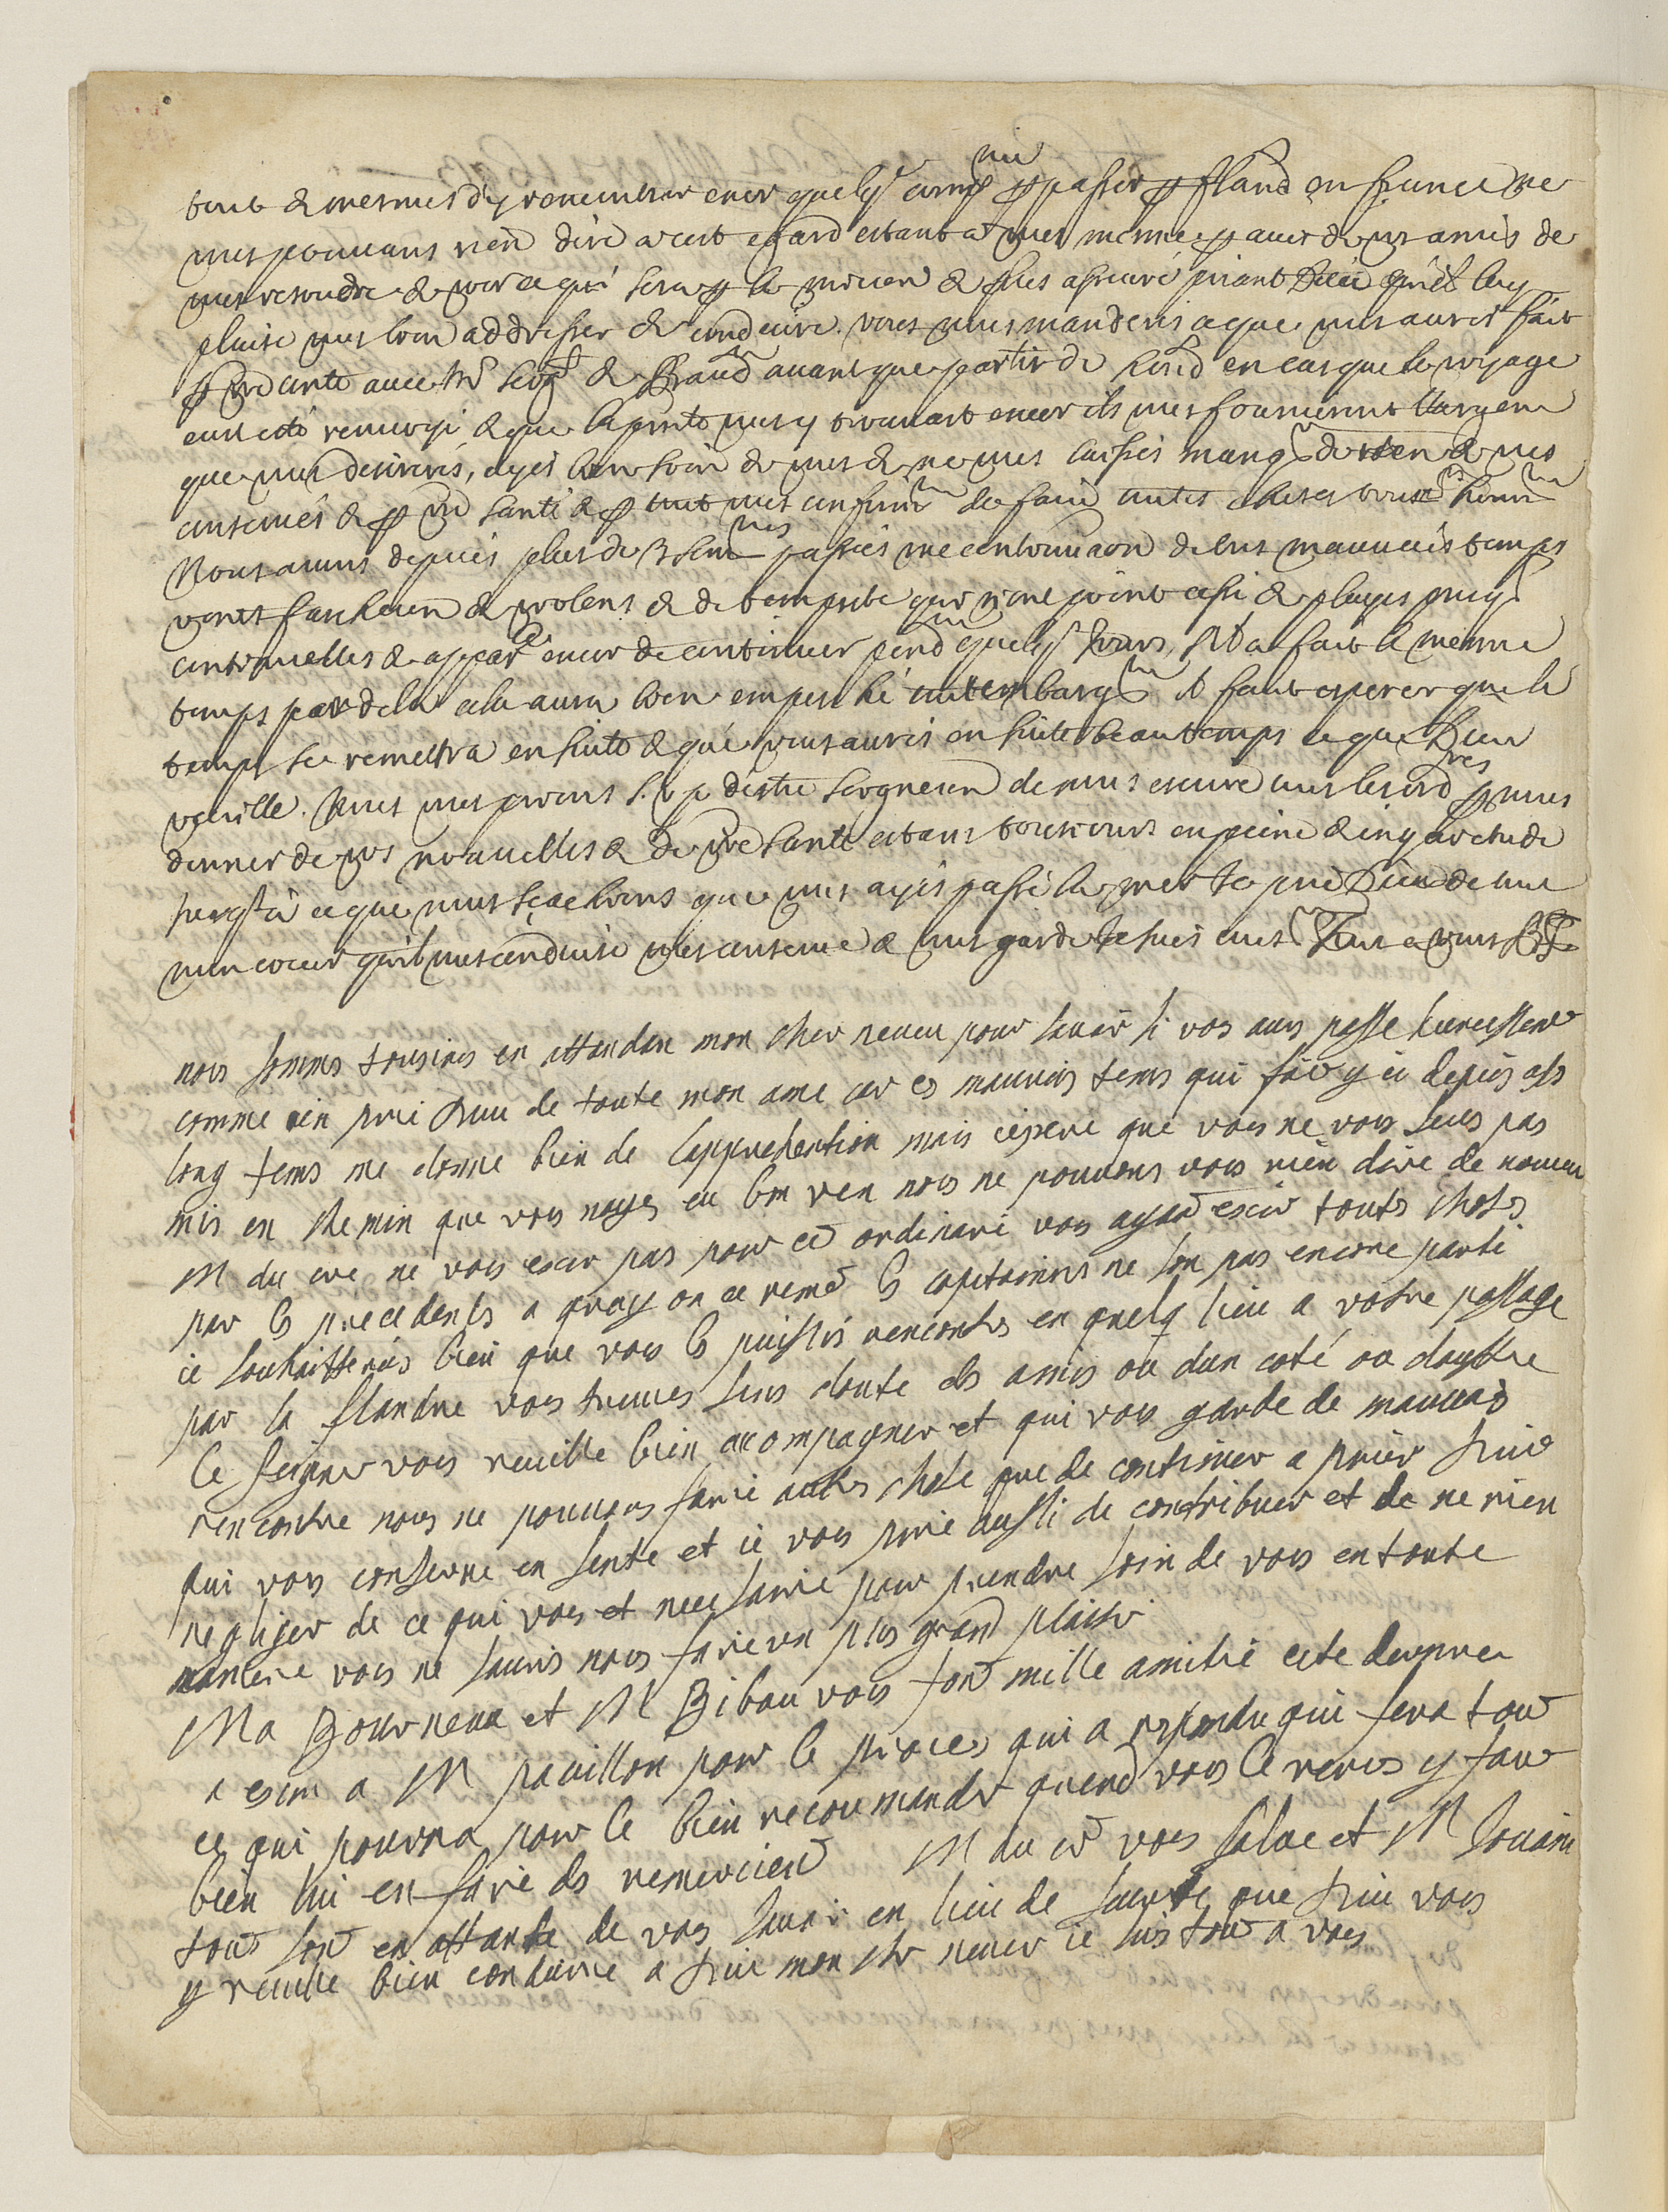 tout & mesmes d'y rencontrer encor quelq comp^nie p passer p fland en france ne
vous pouvans rien dire a cest egard estant a vous mesme p avis de vos amis de
vous resoudre & voir ce qui sera p le mieux & plus asseuré priant Dieu qu'il luy
plaise vous bien addresser & conduire. vous nous manderés ce que vous aurés fait
p vre conte avec M^r & avant que partir de Lond en cas que le voyage
eust esté & que la vous y trouvast encor ils vous fourniront l'argent
que vous desirerés, ayés bien soin de vous & ne vous laissés manq^r de rien & vous
conservés & p vre santé & p tout vous
Nous avons depuis plus de 3 sem^nes passées une continuaon de tres mauvais temps
vents furieux & violens & de tempeste qui n'ont point cessé & pluyes presq
continuelles & appar^ce encor de continuer pend^t quelq^s jours, s'il a fait le mesme
temps par dela cela aura bien empesché il faut esperer que le
temps se remettra en suite & que vous aurés en suite beau temps ce que Dieu
veuille. Nous vous prions S.V.P d'estre soigneux de nous escrire tous les ord^res p nous
donner de vos nouvelles & de vre santé estans tousiours en peine & inquietude
jusq^s à ce que nous sçachions que vous ayés passé la mer Je prie Dieu de tout
mon coeur qu'il vous conduise vous conserve & vous garde Je suis Tout a vous
nous sommes tousiours en attandan mon cher neveu pour savoir si vos aurs passe heureussemt
comme ien prie dieu de toute mon ame car ces mauvais tems qui fait y ci depuis asses
long tems me donne bien de lapprehention mais iespere que vous ne vous seres pas
mis en chemin que vous nayes eu bon ven nous ne pouvons vous rien dire de nouveu
M du cre ne vous escr pas pour cet ordinaire vous ayant escrit toute choses
par les precedents a on ce remet les capitaines ne son pas encore parti
ie souhaitterais bien que vous les puissiés rencontrer en quelq lieu a votre passage
par la flandre vous treuves sans doute des amis ou dun coté ou daustre
le seigner vous veuille bien accompagner et qui vous garde de mauvais
rencontre nous ne pouvons faire autre chose que de continuer a prier dieu
qui vous conserve en sente et ie vous prie aussi de contribuer et de ne rien
negliger de ce qui vous et necessaire pour prendre soin de vous en toute
maniere vous ne sauries nous faire un plus grand plaisir
Ma Bourneau et M Bibau vous font mille amitié cete
a escrit a M pavillon pour le proces qui a respondu qui fera tout
ce qui pourra pour le bien recoumander quend vous le veres y faut
bien lui en faire des remerciem^t M du cr vous salue et M
tous son en attante de vos savoir en lieu de surete que dieu vous
y veuille bien conduire a dieu mon cher neveu ie suis tout a vous